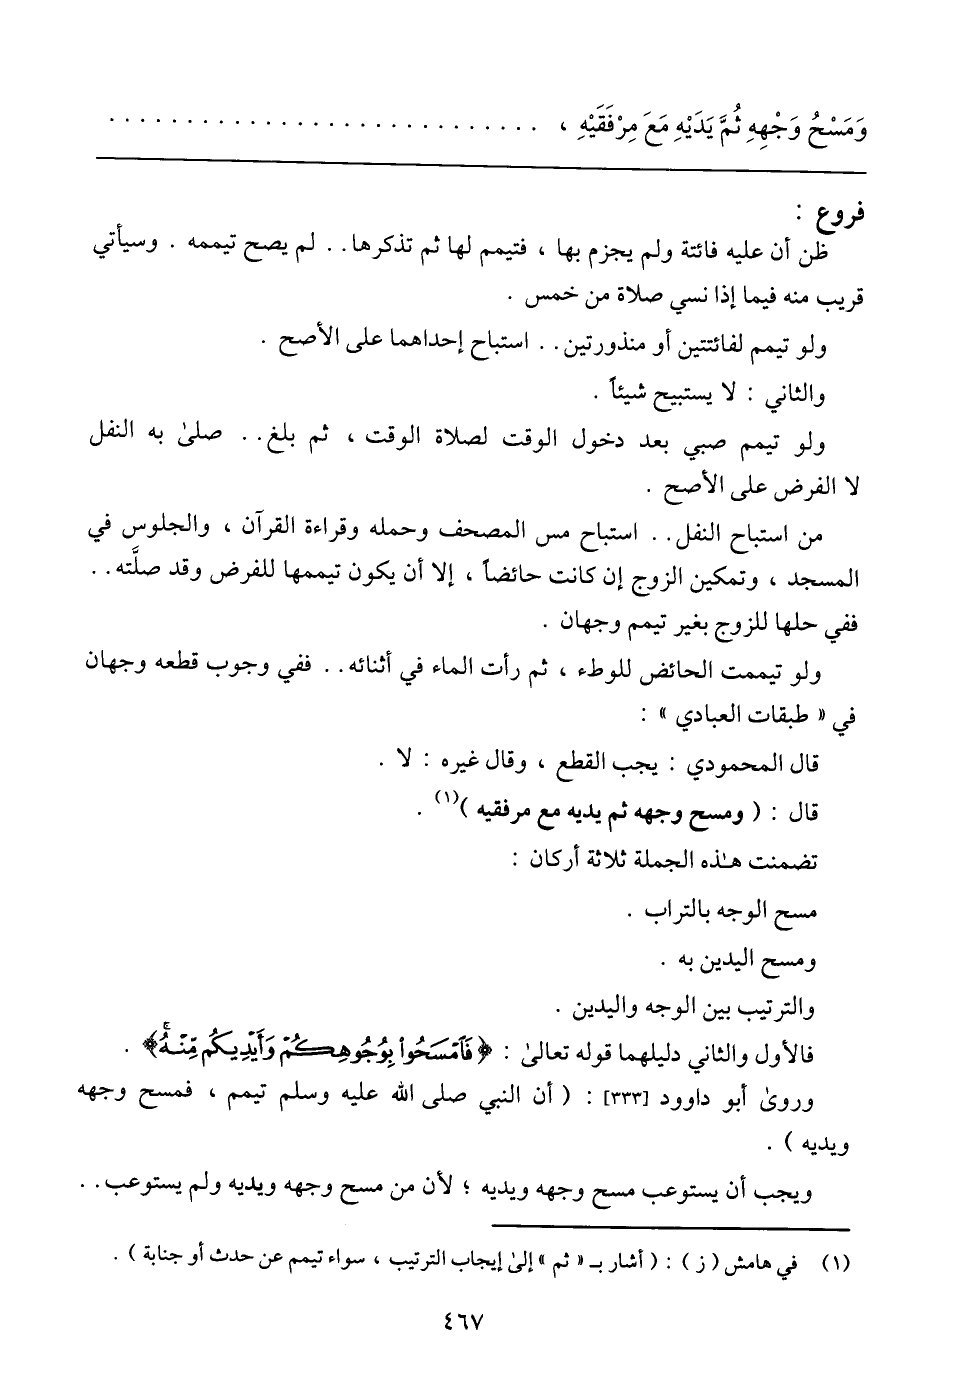 وَمَسْحُ وَجْهِهِ ثُمَّ يَدَيْهِ مَعَ مِرْفَقَيْهِ ، . . . . . . . . . . . . . . . . . . . . . . . . . . . .
فروع :
ظن أن عليه فائتة ولم يجزم بها ، فتيمم لها ثم تذكرها . . لم يصح تيممه . وسيأتي
قريب منه فيما إذا نسي صلاة من خمس .
ولو تيمم لفائتتين أو منذورتين . . استباح إحداهما على الأصح .
والثاني : لا يستبيح شيئاً .
ولو تيمم صبي بعد دخول الوقت لصلاة الوقت ، ثم بلغ . . صلىٰ به النفل
لا الفرض على الأصح .
من استباح النفل . . استباح مس المصحف وحمله وقراءة القرآن ، والجلوس في
المسجد ، وتمكين الزوج إن كانت حائضاً ، إلا أن يكون تيممها للفرض وقد صلَّته . .
ففي حلها للزوج بغير تيمم وجهان .
ولو تيممت الحائض للوطء ، ثم رأت الماء في أثنائه . . ففي وجوب قطعه وجهان
في « طبقات العبادي » :
قال المحمودي : يجب القطع ، وقال غيره : لا .
قال : ( ومسح وجهه ثم يديه مع مرفقيه )(١) .
تضمنت هـٰذه الجملة ثلاثة أركان :
مسح الوجه بالتراب .
ومسح اليدين به .
والترتيب بين الوجه واليدين .
فالأول والثاني دليلهما قوله تعالىٰ : ﴿ فَٱمْسَحُوا۟ بِوُجُوهِكُمْ وَأَيْدِيكُم مِّنْهُ ۚ﴾ .
وروىٰ أبو داوود [٣٣٣] : ( أن النبي صلى الله عليه وسلم تيمم ، فمسح وجهه
ويديه ) .
ويجب أن يستوعب مسح وجهه ويديه ؛ لأن من مسح وجهه ويديه ولم يستوعب . .
(١) في هامش ( ز ) : ( أشار بـ « ثم » إلىٰ إيجاب الترتيب ، سواء تيمم عن حدث أو جنابة ) .
٤٦٧